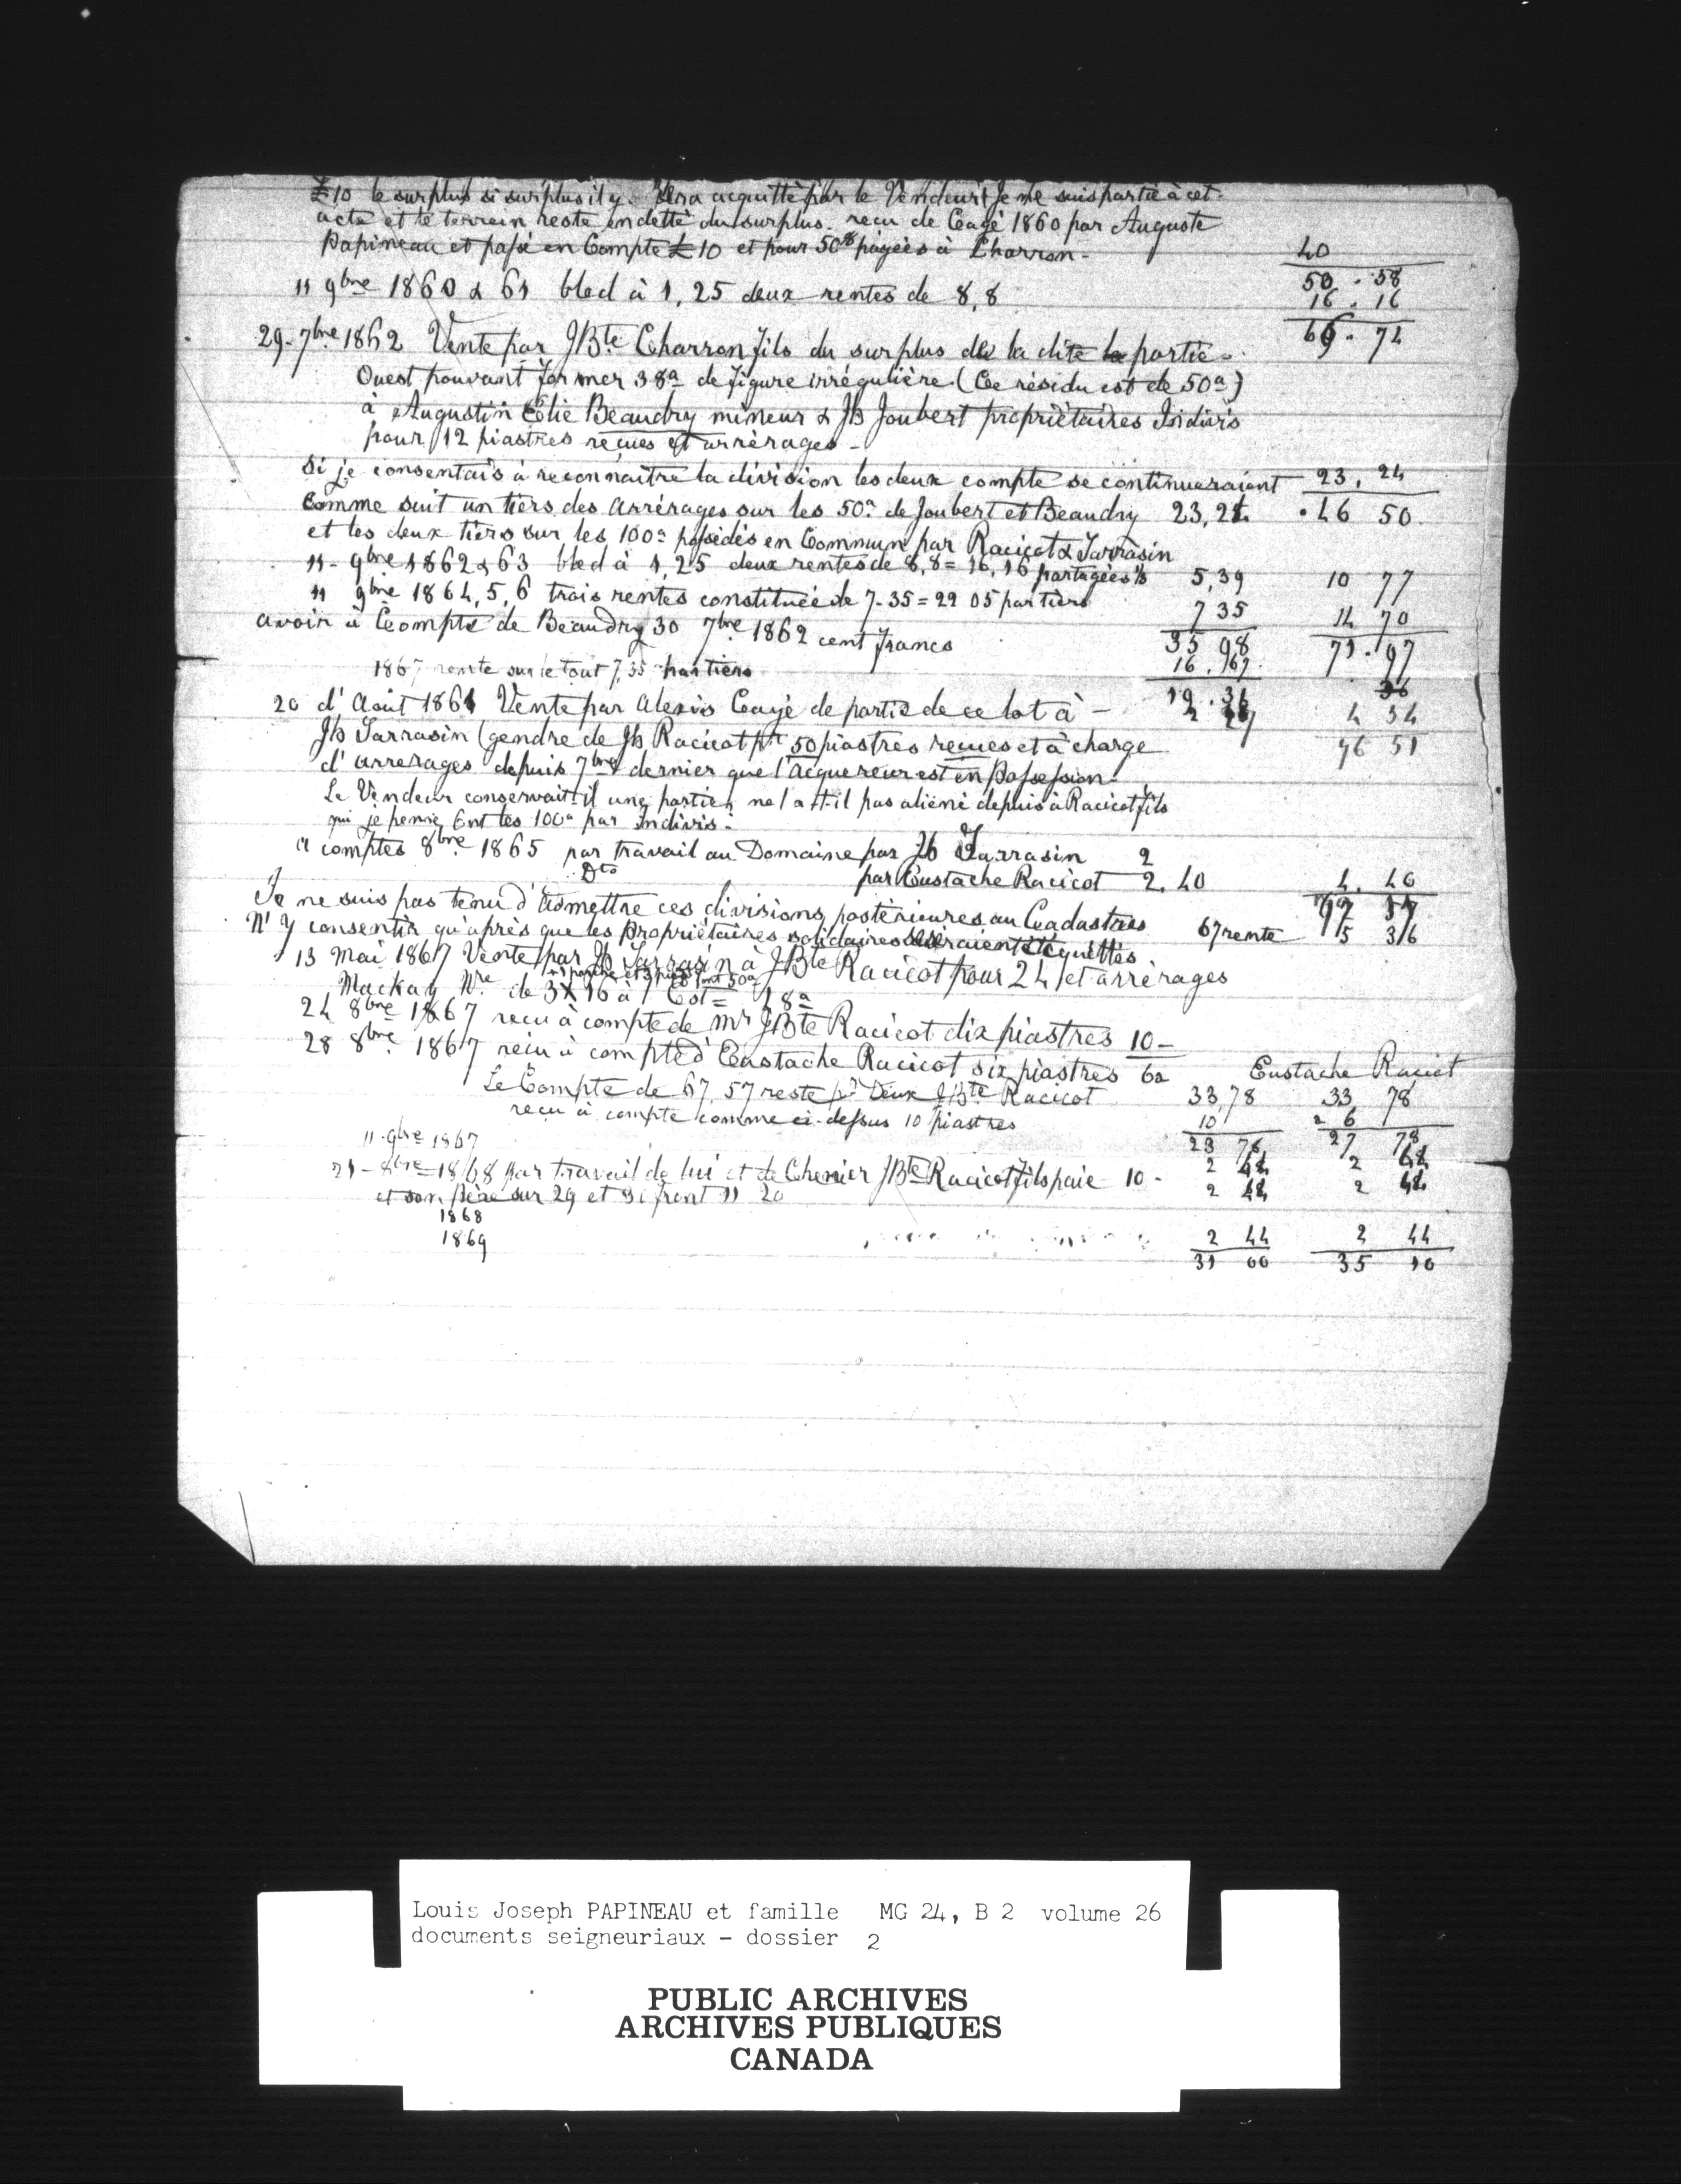 £10 le surplus si surplus il y. sera acquitté par le Vendeur Je ne suis partie à cet
acte et le terrain reste endetté du surplus. recu de Cayé 1860 par Auguste
Papineau et passé en Compte £10 et pour 50a payées à Charron - 40
50 . 58
11 9bre 1860 & 61 bled à 1,25 deux rentes de 8,8 16 . 16
66 . 74
29 - 7bre 1862 Vente par JBte Charron fils du surplus de la dite partie
Ouest pouvant former 38a de figure irrégulière (Ce résidu est de 50a)
à Augustin Elie Beaudry mineur & Jb Joubert propriétaires Indivis
pour 12 piastres reçues et arrérages -
Si je consentais à reconnaitre la division les deux compte se continueraient 23, 24
Comme suit un tiers des arrérages sur les 50a de Joubert et Beaudry 23,24 46 50
et les deux tiers sur les 100a possédés en Commun par Racicot & Sarrasin
11 - 9bre 1862 & 63 bled à 1,25 deux rentes de 8,8 = 16,16 partagées 5,39 10 77
11 9bre 1864, 5, 6 trois rentes constituée de 7-35 = 22 05 par tiers 7 35 14 70
avoir à Compte de Beaudry 30 7bre 1862 cent francs 35 98 71 . 97
16 . 67
1867 rente sur le tout 7,35 par tiers 19 . 31
20 d'Aout 1861 Vente par Alexis Cayé de partie de ce lot à - 4 34
Jb Sarrasin (gendre de Jb Racicot pr 50 piastres recues et à charge 76 51
d'arrerages depuis 7bre dernier que l'acquereur est en Possession -
Le Vendeur conservait-il une partie, ne l'a-t-il pas aliéné depuis à Racicot fils
qui je pense Ont les 100a par Indivis -
a comptes 8bre 1865 par travail au Domaine par Jb Sarrasin 2
Dto par Eustache Racicot 2. 40 4. 40
Je ne suis pas tenu d'admettre ces divisions postérieures au Cadastres
N'y consentir qu'après que les Propriétaires solidaires seraient acquittés 67 rente
13 Mai 1867 Vente par Jb Sarrasin à JBte Racicot pour 24 et arrérages
Mackay Nre de 3 X 16 à l'Est = 48a
24 8bre 1867 recu à compte de Mr JBte Racicot dix piastres 10 -
28 8bre 1867 recu à compte d'Eustache Racicot six piastres 6 Eustache Racicot
Le Compte de 67,57 reste pr Deux JBte Racicot 33,78 33 78
recu à compte comme ci-dessus 10 piastres 10 6
11 - 9bre 1867 23 78 27 78
21 - 8bre = 1868 par travail de lui et de Chenier JBte Racicot fils paie 10 - 2 44 2 44
et son père sur 29 et 31 front 11 20 2 44 2 44
1868
1869 2 44 2 44
31 00 35 10
Louis Joseph PAPINEAU et famille MG 24, B 2 volume 26
documents seigneuriaux - dossier 2
PUBLIC ARCHIVES
ARCHIVES PUBLIQUES
CANADA